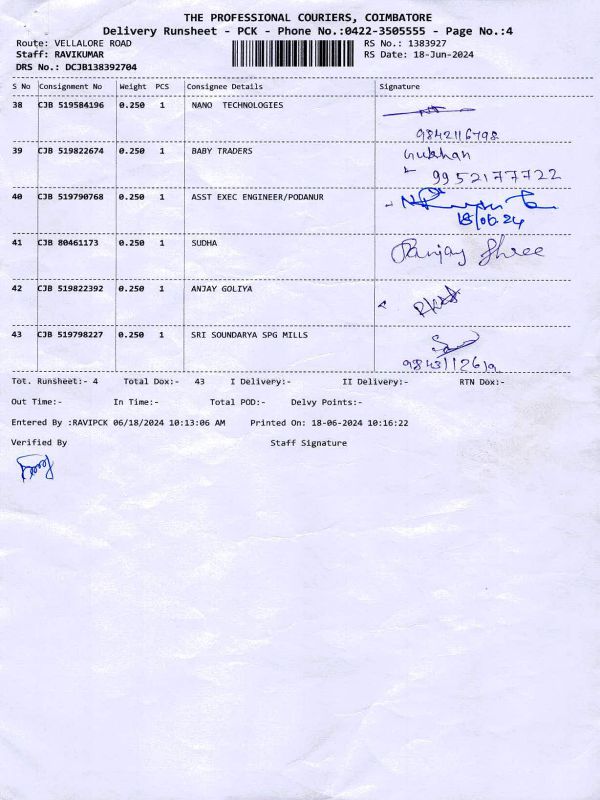 THE PROFESSIONAL COURIERS, COIMBATORE
Delivery Runsheet - PCK - Phone No.:0422-3505555 - Page No.:4
Route: VELLALORE ROAD RS No.: 1383927
Staff: RAVIKUMAR RS Date: 18-Jun-2024
DRS No.: DCJB138392704
S No Consignment No Weight PCS Consignee Details Signature
38 CJB 519584196 0.250 1 NANO TECHNOLOGIES
9842116798
39 CJB 519822674 0.250 1 BABY TRADERS
9952177722
40 CJB 519790768 0.250 1 ASST EXEC ENGINEER/PODANUR
18/06.24
41 CJB 80461173 0.250 1 SUDHA
Sanjay Shree
42 CJB 519822392 0.250 1 ANJAY GOLIYA
43 CJB 519798227 0.250 1 SRI SOUNDARYA SPG MILLS
Tot. Runsheet:- 4 Total Dox:- 43 I Delivery:- II Delivery:- RTN Dox:-
Out Time:- In Time:- Total POD:- Delvy Points:-
Entered By :RAVIPCK 06/18/2024 10:13:06 AM Printed On: 18-06-2024 10:16:22
Verified By Staff Signature